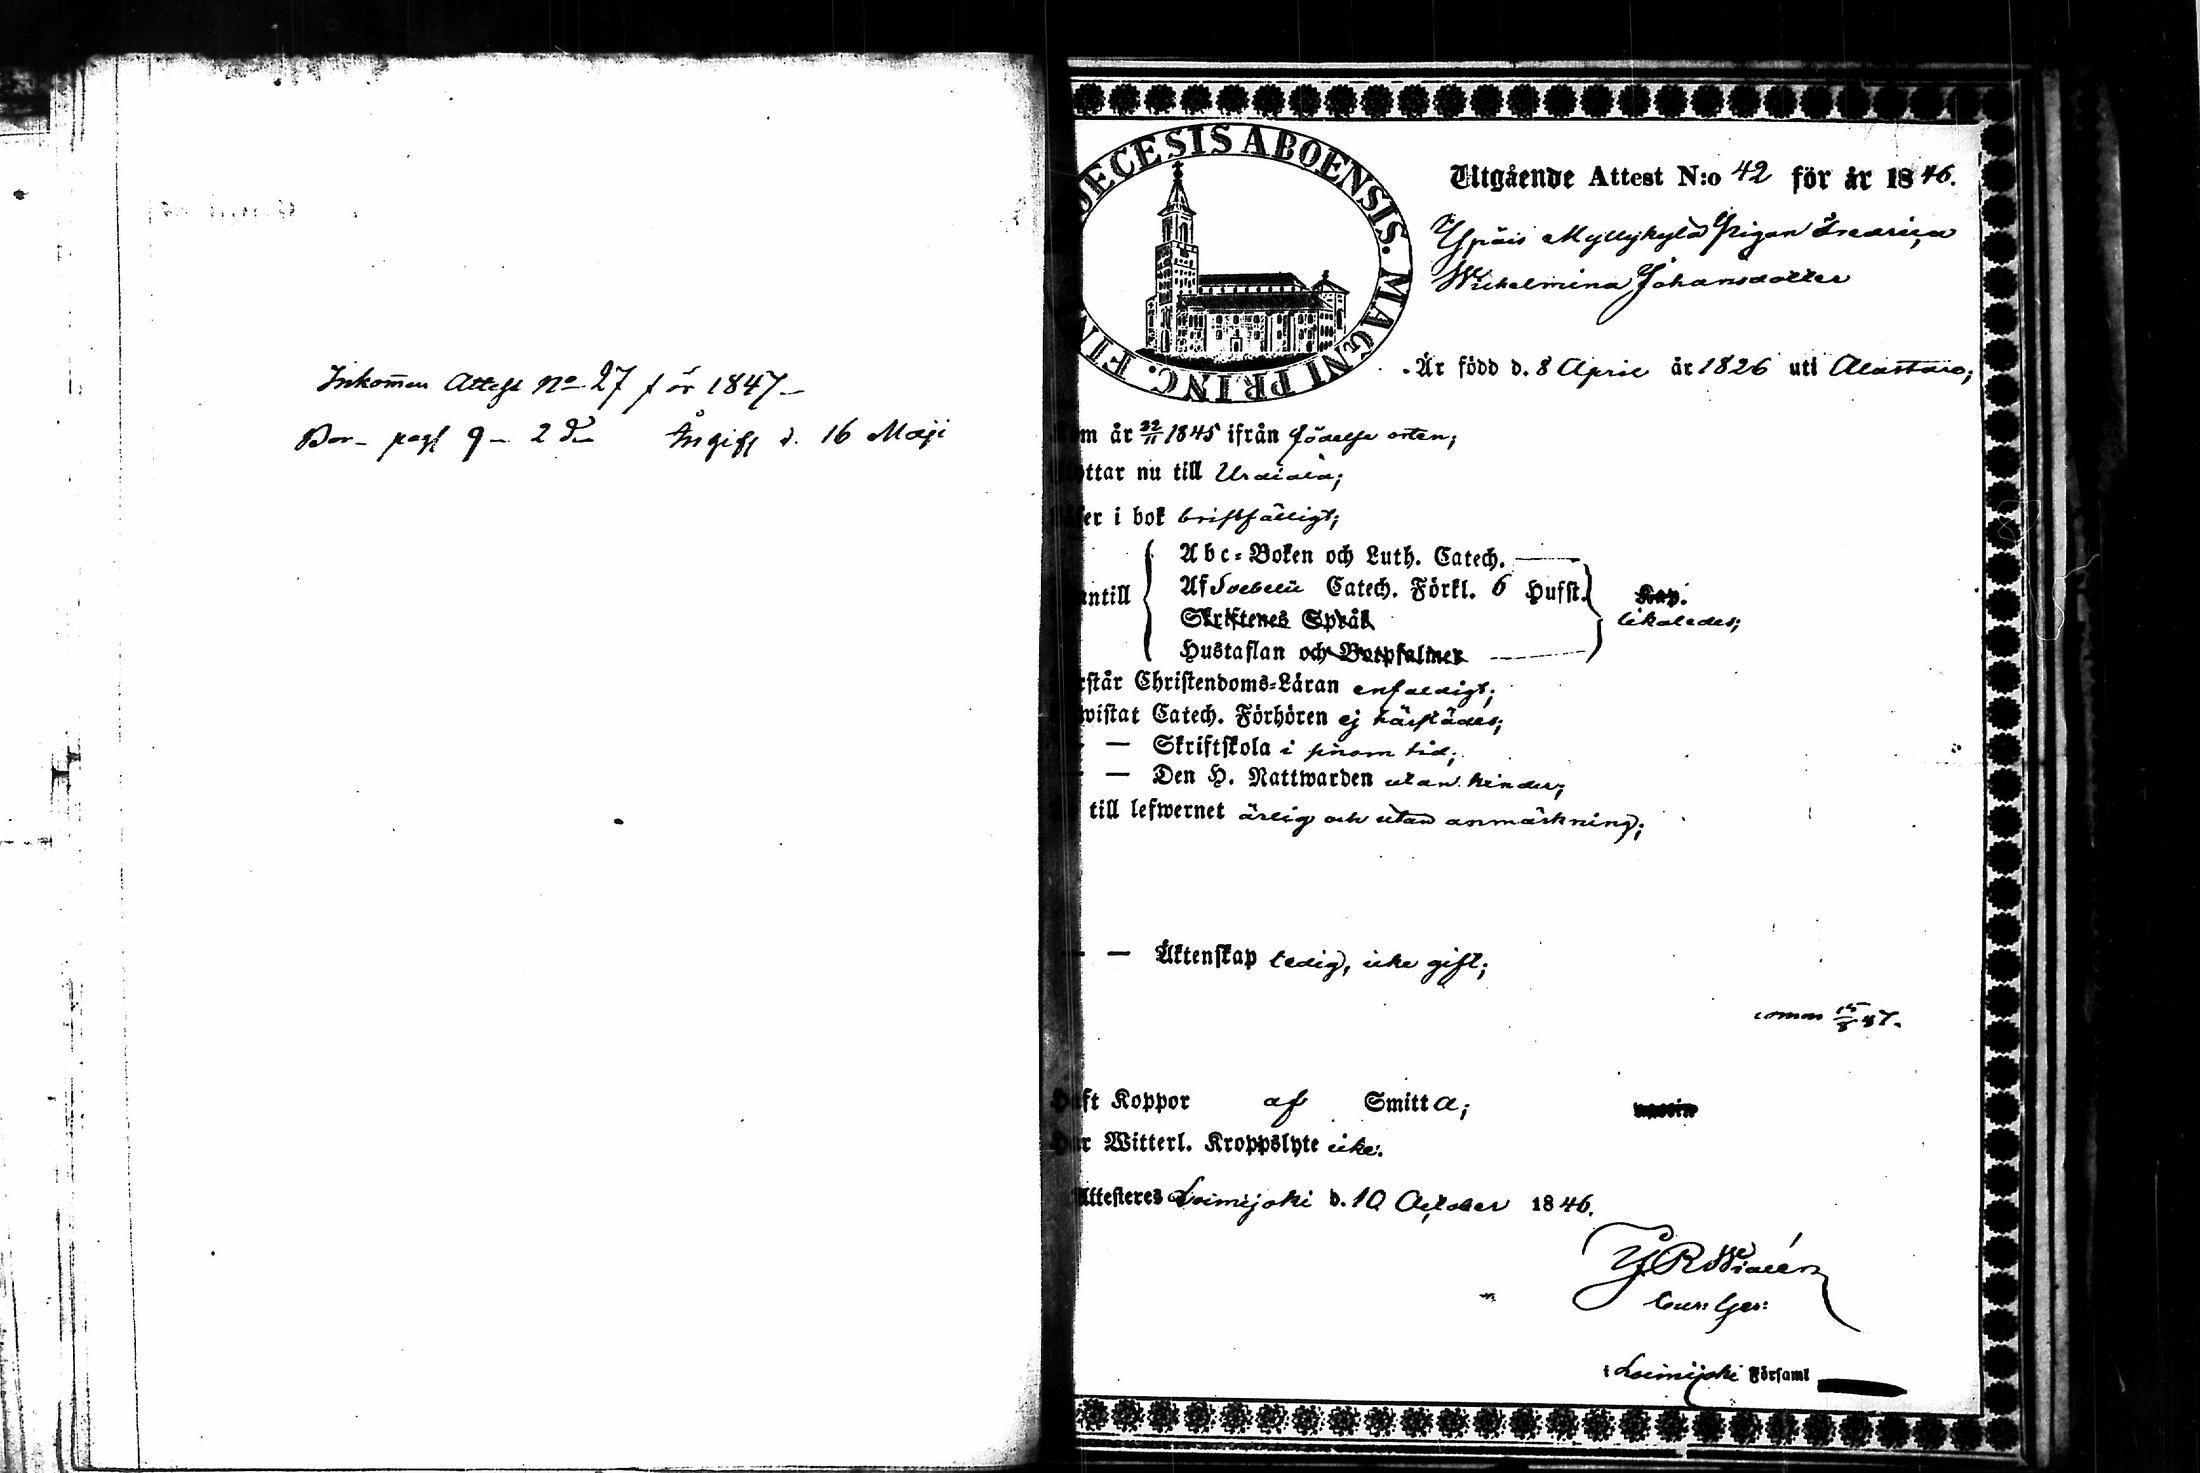 Inkom̄en Attest No 27 för 1847
Bor pag 9 2 d Angift d. 16 Maji
DECESIS ABOENSIS. MAGNI PRINC. FIN
Utgående Attest N:o 42 för år 1846.
Ypäis Myllykylä Pigan Fredrica
Wilhelmina Johansdotter
Är född d. 8 April år 1826 uti Alastaro;
om år 22/11 1845 ifrån födelse orten;
ottar nu till Urdiala;
ser i bok bristfälligt;
Abc-Boken och Luth. Catech.
Af Svebelii Catech. Förkl. 6 Hufst.
Skriftenes Språk
Hustaflan och Botpsalmer
antill
Kap.
likaledes;
rstår Christendoms-Läran enfaldigt;
wistat Catech. Förhören ej härstädes;
— Skriftskola i sinom tid;
— Den H. Nattwarden utan hinder;
till lefwernet ärlig och utan anmärkning;
— — Äktenskap ledig, icke gift;
comm 15/8 47.
Haft Koppor af Smitta;
Har Witterl. Kroppslyte icke.
Attesteres Loimijoki d. 10 October 1846.
Cur: Ger:
i Loimijoki Församl